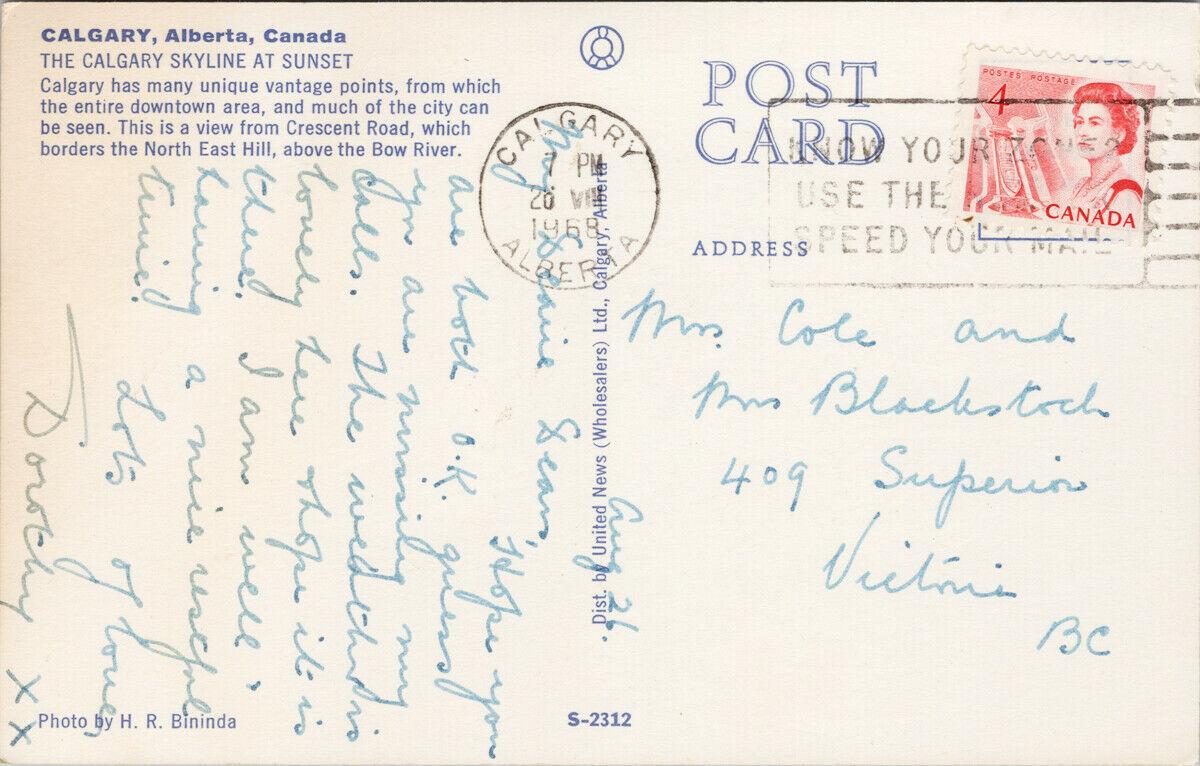 CALGARY, Alberta, Canada
THE CALGARY SKYLINE AT SUNSET
Calgary has many unique vantage points, from which
the entire downtown area, and much of the city can
be seen. This is a view from Crescent Road, which
borders the North East Hill, above the Bow River.
POST
CARD
ADDRESS
CALGARY
7 PM
26 VIII
1968
ALBERTA
KNOW YOUR ZONES
USE THE
SPEED YOUR MAIL
POSTES POSTAGE
4
CANADA
Aug 26.
My Dears,
Hope you
are both O.K. guess
you are missing my
calls. The weather is
lovely here hope it is
there. I am well
having a nice restful
time.
Lots of love
Dorothy
X X
Mrs. Cole and
Mrs Blackstock
409 Superior
Victoria
BC
Dist. by United News (Wholesalers) Ltd., Calgary, Alberta
Photo by H. R. Bininda
S-2312